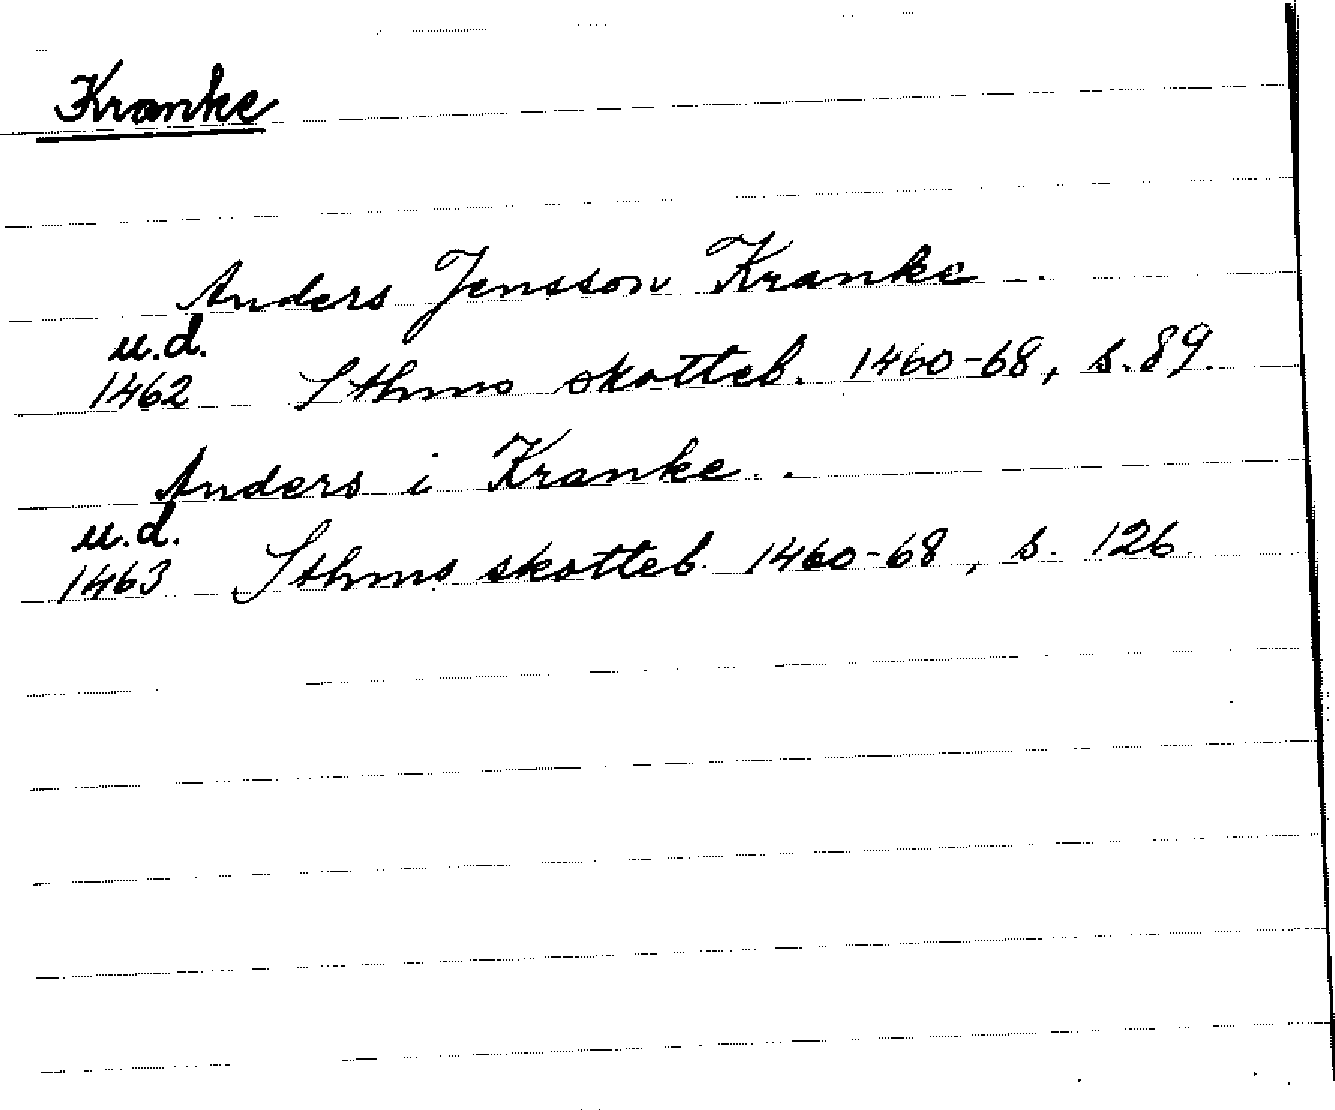 Kranke
Anders Jensson Kranke
u.d.
1462 Sthms skotteb. 1460-68, s. 89.
Anders i Kranke
u.d.
1463 Sthms skotteb. 1460-68, s. 126